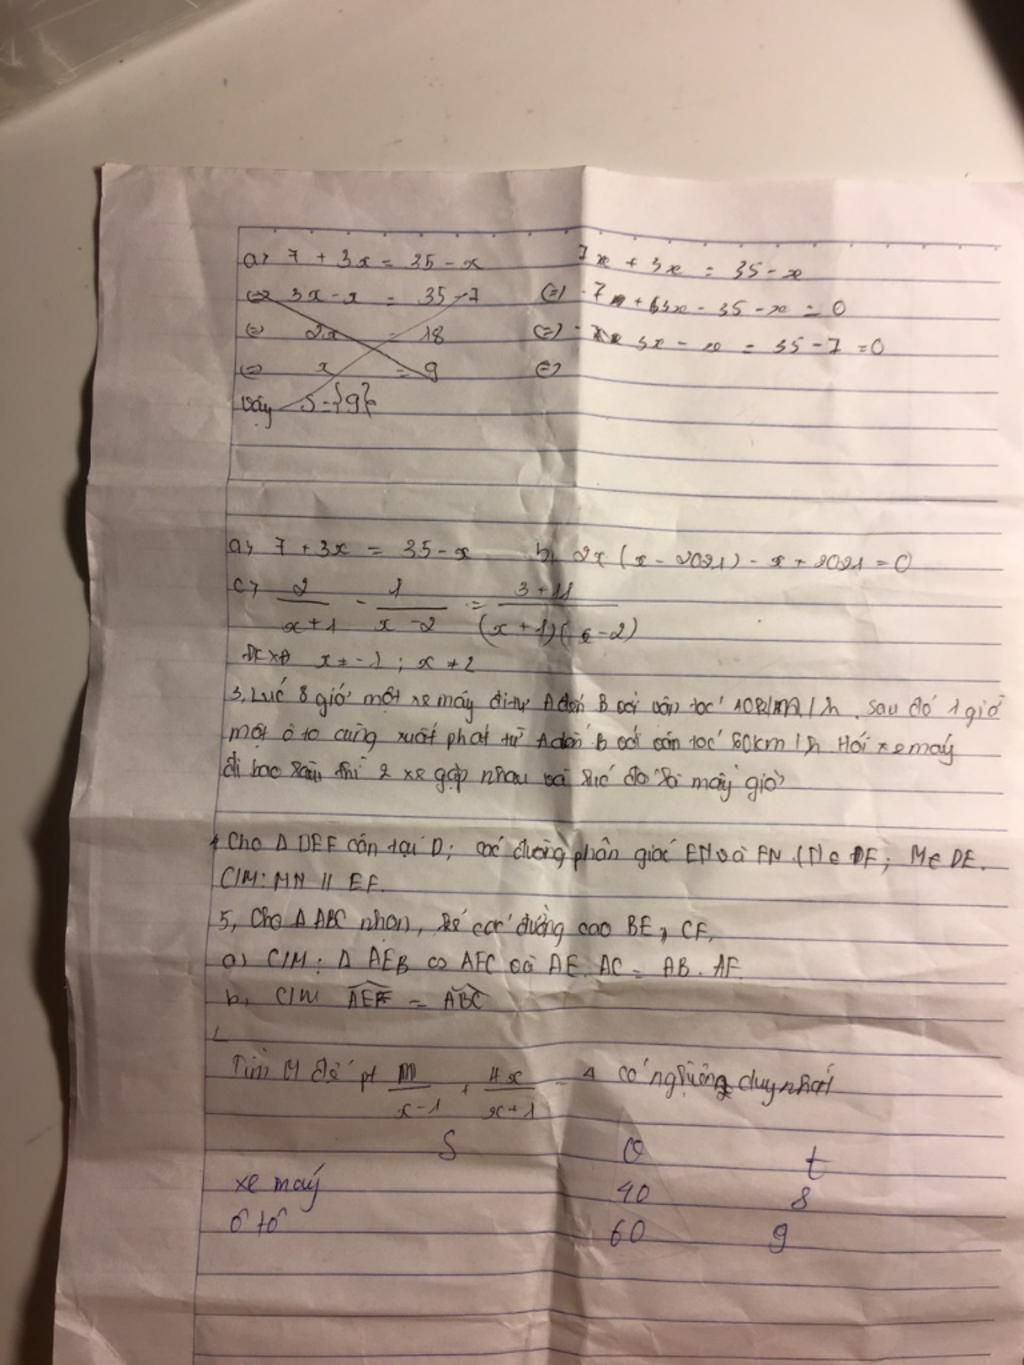 a, 7 + 3x = 35 - x
<=> 3x - x = 35 - 7
<=> 2x = 18
<=> x = 9
Vậy S = {9}
7x + 3x = 35 - x
<=> 7 + 3x - 35 - x = 0
<=> 3x - x = 35 - 7 = 0
<=>
a, 7 + 3x = 35 - x b, 2x (x - 2021) - x + 2021 = 0
c, 2/(x+1) - 1/(x-2) = (3+11)/((x+1)(x-2))
ĐKXĐ x ≠ -1 ; x ≠ 2
3, Lúc 8 giờ một xe máy đi từ A đến B với vận tốc /h. sau đó 1 giờ
một ô to cũng xuất phát từ A đến B với vận tốc 60km/h Hỏi xe máy
đi bao lâu thì 2 xe gặp nhau và lúc đó là mấy giờ
4 Cho Δ DEF cân tại D; các đường phân giác EN và FN (N ∈ DF; M ∈ DE.
C/M: MN // EF.
5, Cho Δ ABC nhọn, kẻ các đường cao BE, CF,
a) C/M: Δ AEB ∽ AFC và AE. AC = AB. AF
b, C/M AEF = ABC
Tìm M để pt m/(x-1) + 4x/(x+1) = 4 có nghiệm duy nhất
S v t
xe máy 40 8
ô tô 60 9